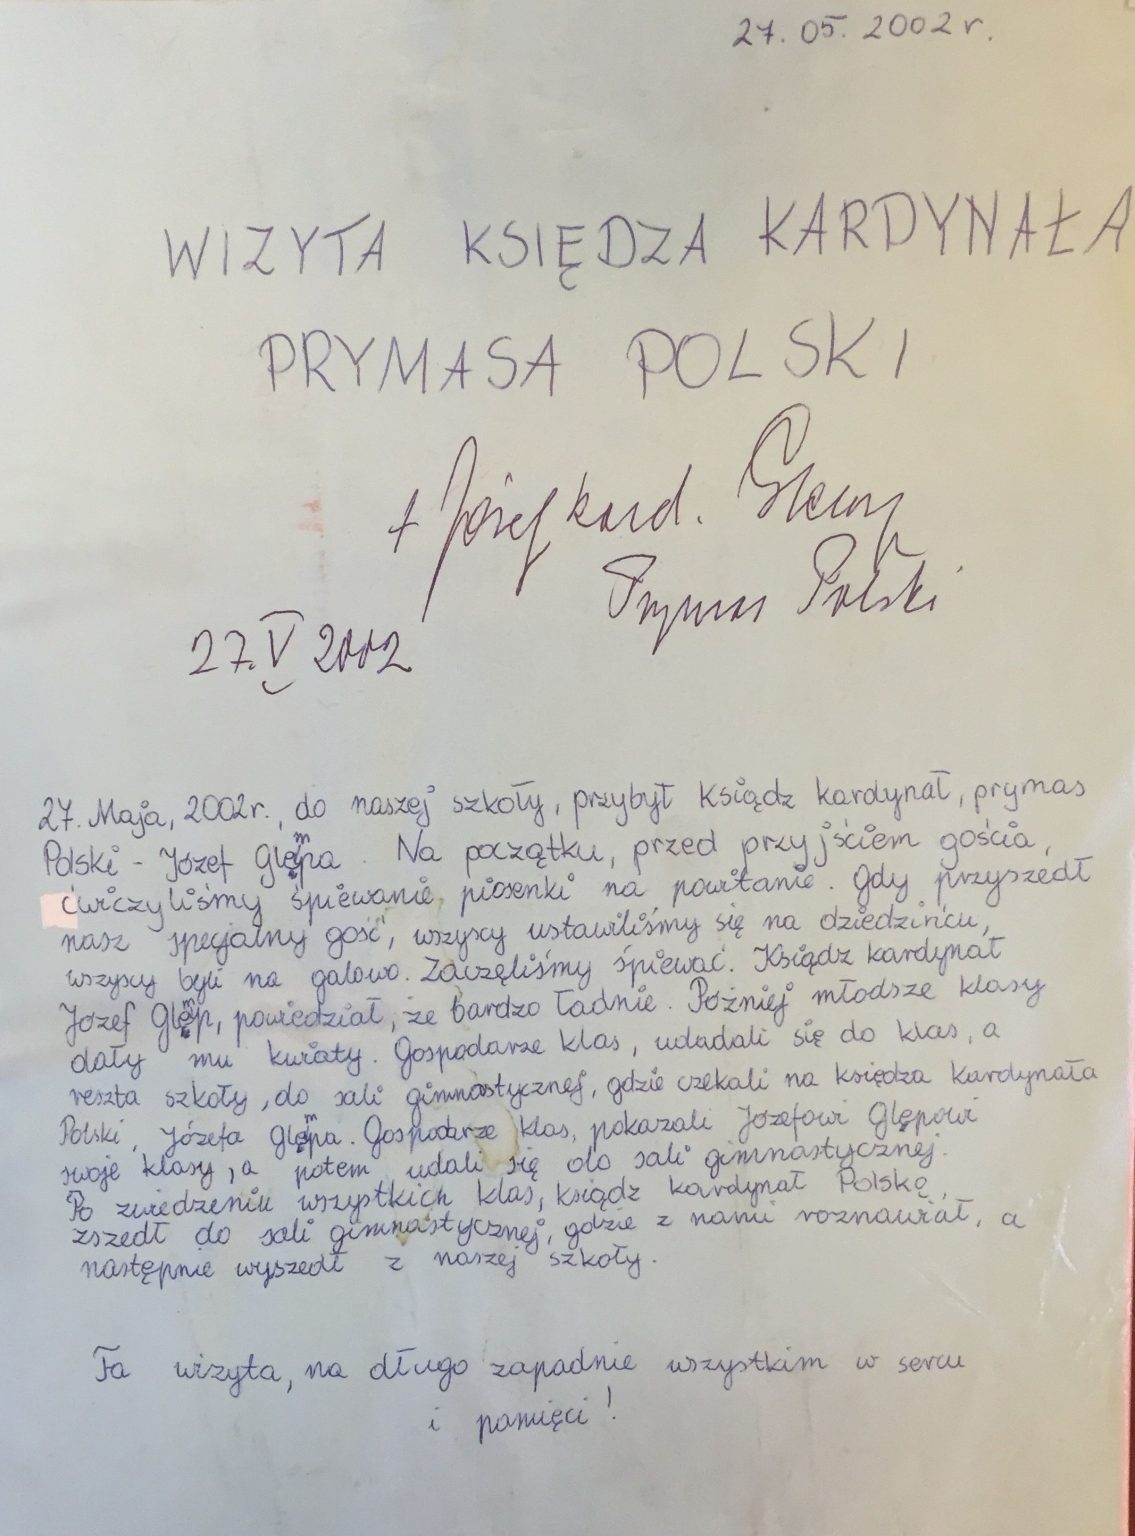 27. 05. 2002 r.
WIZYTA KSIĘDZA KARDYNAŁA
PRYMASA POLSKI
+ Józef kard. Glemp
Prymas Polski
27. V 2002
27. Maja, 2002r., do naszej szkoły, przybył Ksiądz kardynał, prymas
Polski - Józef Glęmpa. Na początku, przed przyjściem gościa,
ćwiczyliśmy śpiewanie piosenki na powitanie. Gdy przyszedł
nasz „specjalny gość”, wszyscy ustawiliśmy się na dziedzińcu,
wszyscy byli na galowo. Zaczęliśmy śpiewać. Ksiądz kardynał
Józef Glęmp, powiedział, że bardzo ładnie. Później młodsze klasy
dały mu kwiaty. Gospodarze klas, udadali się do klas, a
reszta szkoły, do sali gimnastycznej, gdzie czekali na księdza kardynała
Polski, Józefa Glęmpa. Gospodarze klas, pokazali Józefowi Glępowi
swoje klasy, a potem udali się do sali gimnastycznej.
Po zwiedzeniu wszystkich klas, ksiądz kardynał Polskę,
zszedł do sali gimnastycznej, gdzie z nami rozmawiał, a
następnie wyszedł z naszej szkoły.
Ta wizyta, na długo zapadnie wszystkim w sercu
i pamięci!